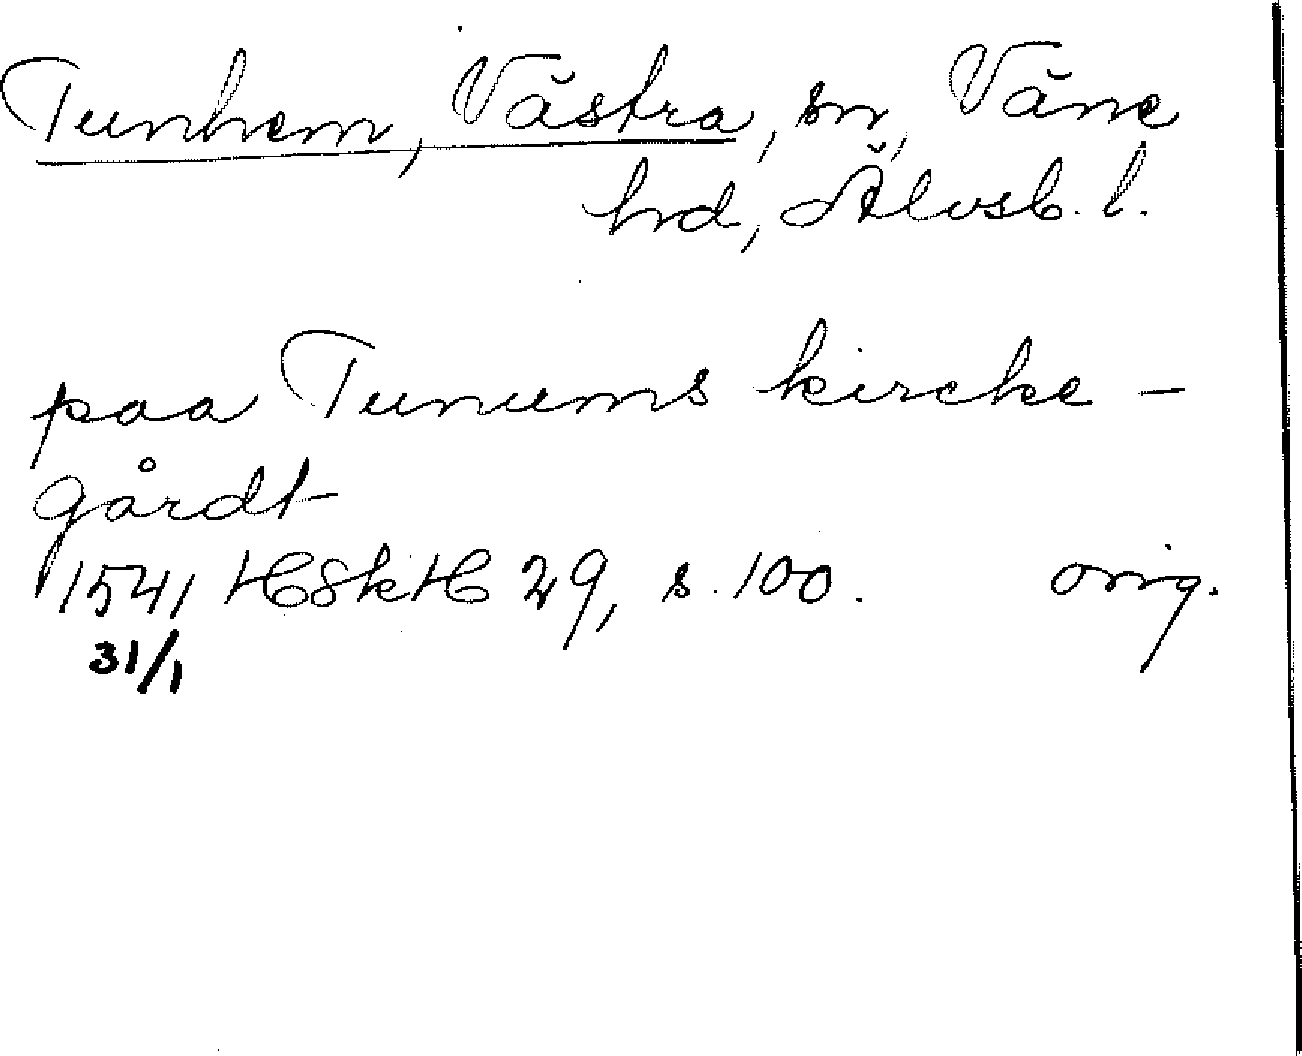 Tunhem, Västra, sn, Väne
hd, Älvsb. l.
paa Tunums kircke-
gårdt
1541 HSkH 29, s. 100. orig.
31/1